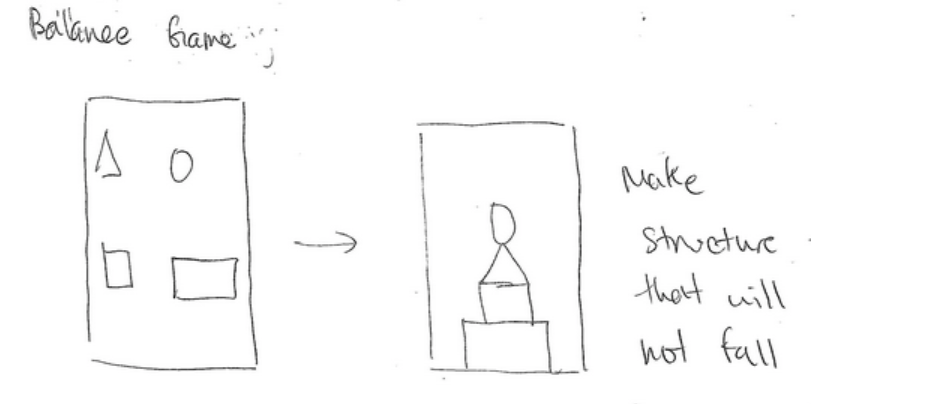 Balance Game
Make
structure
that will
not fall